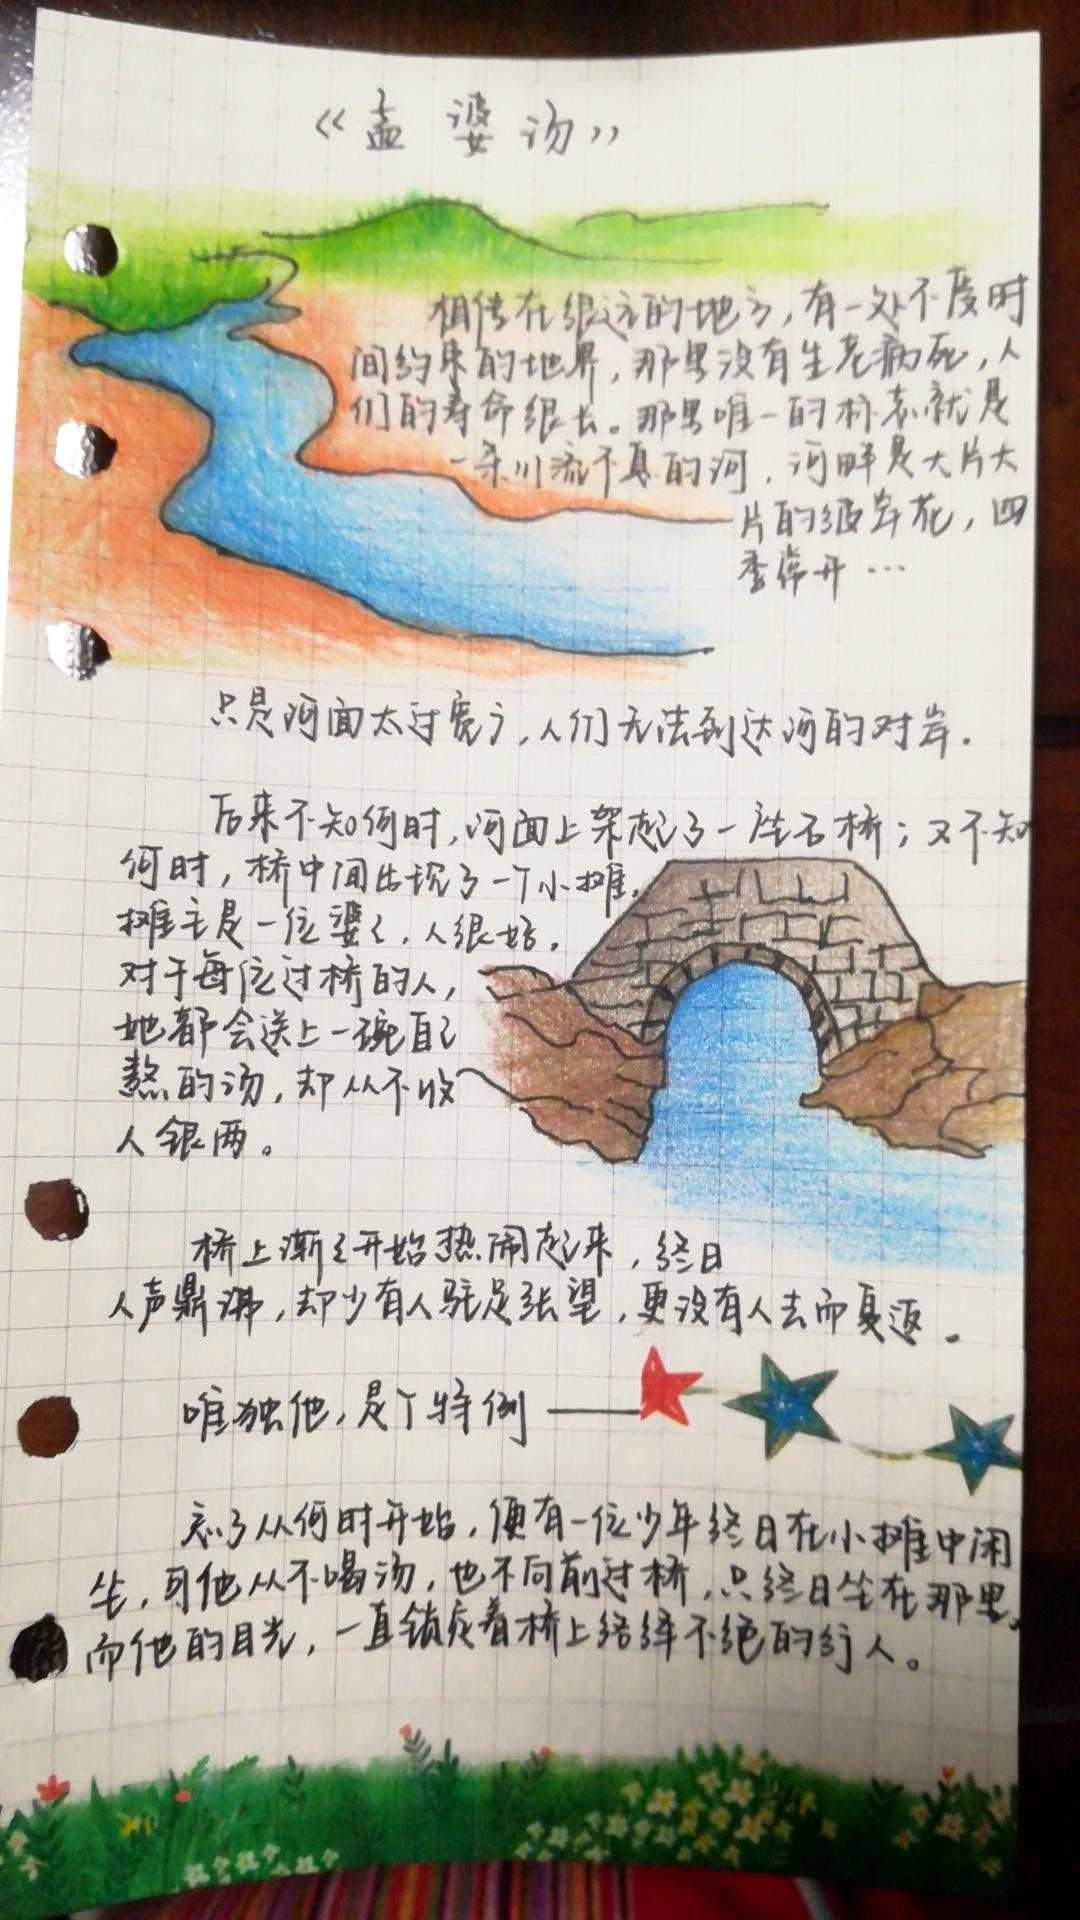 《孟婆汤》
相传在很远的地方，有一处不度时
间约束的地界，那里没有生老病死，人
们的寿命很长。那里唯一的标志就是
一条川流不息的河，河畔是大片大
片的彼岸花，四
季常开…
只是河面太过宽广，人们无法到达河的对岸.
后来不知何时，河面上架起了一座石桥；又不知
何时，桥中间出现了一个小摊，
摊主是一位婆々，人很好。
对于每位过桥的人，
她都会送上一碗自己
熬的汤，却从不收
人银两。
桥上渐々开始热闹起来，终日
人声鼎沸，却少有人驻足张望，更没有人去而复返。
唯独他，是个特例——
忘了从何时开始，便有一位少年终日在小摊中闲
坐，可他从不喝汤，也不向前过桥，只终日坐在那里，
而他的目光，一直锁定着桥上络绎不绝的行人。